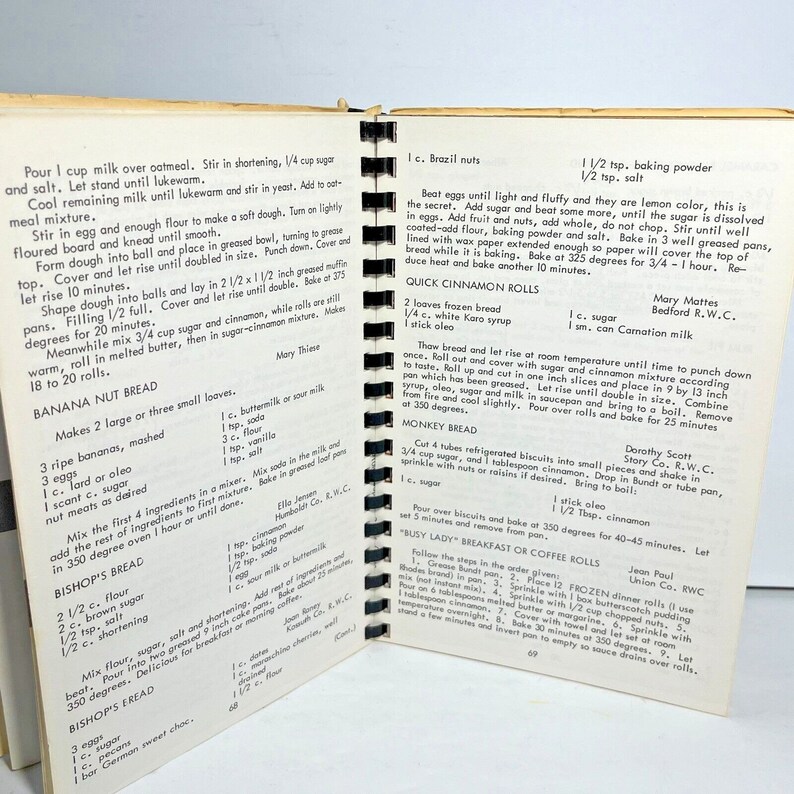 Pour 1 cup milk over oatmeal. Stir in shortening, 1/4 cup sugar
and salt. Let stand until lukewarm.
Cool remaining milk until lukewarm and stir in yeast. Add to oat-
meal mixture.
Stir in egg and enough flour to make a soft dough. Turn on lightly
floured board and knead until smooth.
Form dough into ball and place in greased bowl, turning to grease
top. Cover and let rise until doubled in size. Punch down. Cover and
let rise 10 minutes.
Shape dough into balls and lay in 2 1/2 x 1 1/2 inch greased muffin
pans. Filling 1/2 full. Cover and let rise until double. Bake at 375
degrees for 20 minutes.
Meanwhile mix 3/4 cup sugar and cinnamon, while rolls are still
warm, roll in melted butter, then in sugar-cinnamon mixture. Makes
18 to 20 rolls.
Mary Thiese
BANANA NUT BREAD
Makes 2 large or three small loaves.
3 ripe bananas, mashed
3 eggs
1 c. lard or oleo
1 scant c. sugar
nut meats as desired
1 c. buttermilk or sour milk
1 tsp. soda
3 c. flour
1 tsp. vanilla
1 tsp. salt
Mix the first 4 ingredients in a mixer. Mix soda in the milk and
add the rest of ingredients to first mixture. Bake in greased loaf pans
in 350 degree oven 1 hour or until done.
Ella Jensen
Humboldt Co. R.W.C.
BISHOP'S BREAD
2 1/2 c. flour
2 c. brown sugar
1/2 tsp. salt
1/2 c. shortening
1 tsp. cinnamon
1 tsp. baking powder
1/2 tsp. soda
1 egg
1 c. sour milk or buttermilk
Mix flour, sugar, salt and shortening. Add rest of ingredients and
beat. Pour into two greased 9 inch cake pans. Bake about 25 minutes,
350 degrees. Delicious for breakfast or morning coffee.
Joan Raney
Kossuth Co. R.W.C.
BISHOP'S EREAD
3 eggs
1 c. sugar
1 c. pecans
1 bar German sweet choc.
1 c. dates
1 c. maraschino cherries, well
drained
1 1/2 c. flour
(Cont.)
68
1 c. Brazil nuts
1 1/2 tsp. baking powder
1/2 tsp. salt
Beat eggs until light and fluffy and they are lemon color, this is
the secret. Add sugar and beat some more, until the sugar is dissolved
in eggs. Add fruit and nuts, add whole, do not chop. Stir until well
coated-add flour, baking powder and salt. Bake in 3 well greased pans,
lined with wax paper extended enough so paper will cover the top of
bread while it is baking. Bake at 325 degrees for 3/4 - 1 hour. Re-
duce heat and bake another 10 minutes.
Mary Mattes
Bedford R.W.C.
QUICK CINNAMON ROLLS
2 loaves frozen bread
1/4 c. white Karo syrup
1 stick oleo
1 c. sugar
1 sm. can Carnation milk
Thaw bread and let rise at room temperature until time to punch down
once. Roll out and cover with sugar and cinnamon mixture according
to taste. Roll up and cut in one inch slices and place in 9 by 13 inch
pan which has been greased. Let rise until double in size. Combine
syrup, oleo, sugar and milk in saucepan and bring to a boil. Remove
from fire and cool slightly. Pour over rolls and bake for 25 minutes
at 350 degrees.
Dorothy Scott
Story Co. R.W.C.
MONKEY BREAD
Cut 4 tubes refrigerated biscuits into small pieces and shake in
3/4 cup sugar, and 1 tablespoon cinnamon. Drop in Bundt or tube pan,
sprinkle with nuts or raisins if desired. Bring to boil:
1 c. sugar
1 stick oleo
1 1/2 Tbsp. cinnamon
Pour over biscuits and bake at 350 degrees for 40-45 minutes. Let
set 5 minutes and remove from pan.
Jean Paul
Union Co. RWC
"BUSY LADY" BREAKFAST OR COFFEE ROLLS
Follow the steps in the order given:
1. Grease Bundt pan. 2. Place 12 FROZEN dinner rolls (I use
Rhodes brand) in pan. 3. Sprinkle with 1 box butterscotch pudding
mix (not instant mix). 4. Sprinkle with 1/2 cup chopped nuts. 5.
Pour on 6 tablespoons melted butter or margarine. 6. Sprinkle with
1 tablespoon cinnamon. 7. Cover with towel and let set at room
temperature overnight. 8. Bake 30 minutes at 350 degrees. 9. Let
stand a few minutes and invert pan to empty so sauce drains over rolls.
69